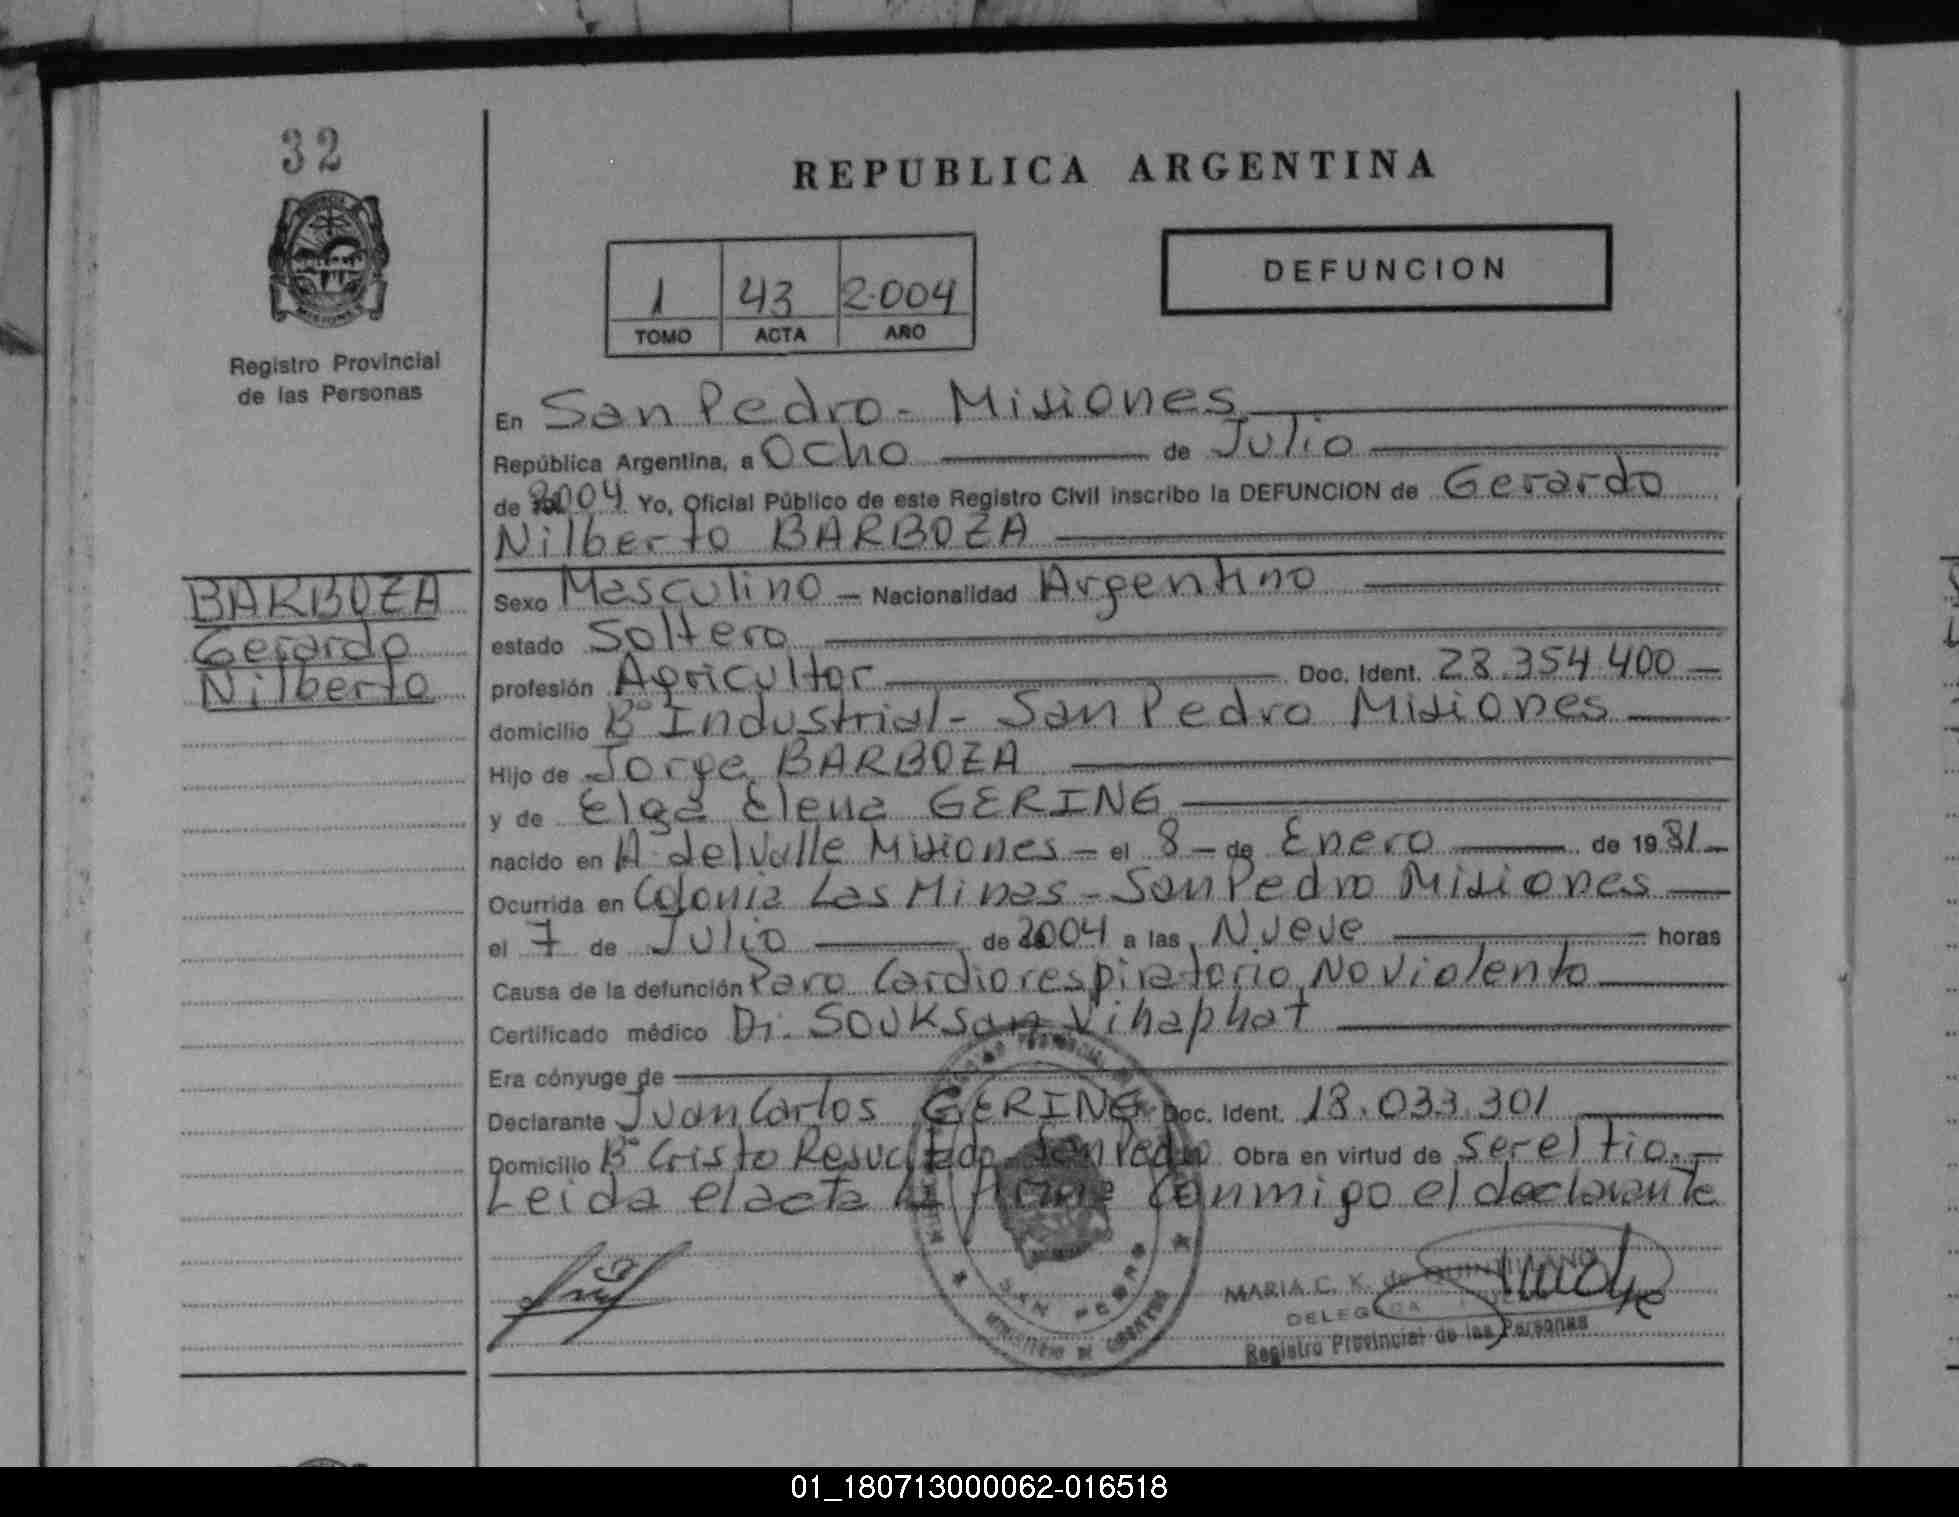 32
REPUBLICA ARGENTINA
DEFUNCION
1 43 2.004
TOMO ACTA AÑO
Registro Provincial
de las Personas
BARBOZA
Gerardo
Nilberto
En San Pedro - Misiones
República Argentina, a Ocho de Julio
de 2004 Yo, Oficial Público de este Registro Civil inscribo la DEFUNCION de Gerardo
Nilberto BARBOZA
Sexo Masculino - Nacionalidad Argentino
estado Soltero
profesión Agricultor Doc. Ident. 28.354.400 -
domicilio B° Industrial - San Pedro Misiones
Hijo de Jorge BARBOZA
y de Elga Elena GERING
nacido en A. del Valle Misiones - el 8 - de Enero de 1981 -
Ocurrida en Colonia Las Minas - San Pedro Misiones
el 7 de Julio de 2004 a las Nueve horas
Causa de la defunción Paro Cardiorespiratorio No Violento
Certificado médico Dr. SOUKSAN Vihaphat
Era cónyuge de
Declarante Juan Carlos GERING Doc. Ident. 18.033.301
Domicilio B° Cristo Resucitado San Pedro Obra en virtud de ser el tio. -
Leida el acta la firma Conmigo el declarante
SAN PEDRO
MINISTERIO DE GOBIERNO
MARIA C. K. de QUINTILIANO
DELEGADA
Registro Provincial de las Personas
01_180713000062-016518